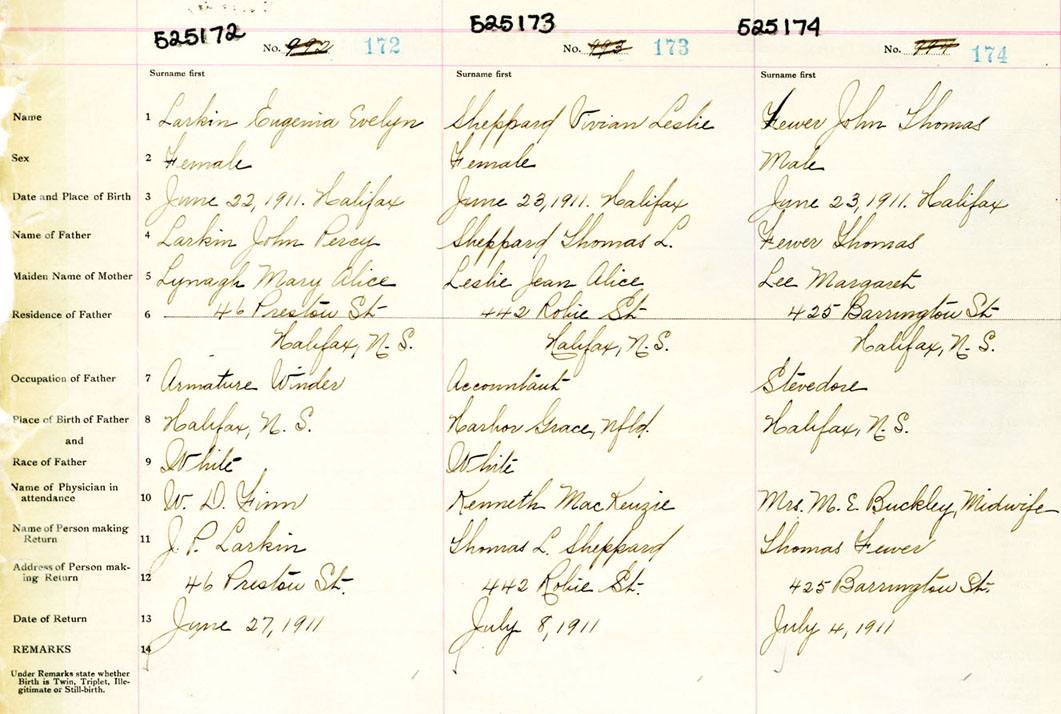 525172 525173 525174
No. 992 172 No. 993 173 No. 174
Surname first Surname first Surname first
Name 1 Larkin Eugenia Evelyn Sheppard Vivian Leslie Fewer John Thomas
Sex 2 Female Female Male
Date and Place of Birth 3 June 22, 1911. Halifax June 23, 1911. Halifax June 23, 1911. Halifax
Name of Father 4 Larkin John Percy Sheppard Thomas L. Fewer Thomas
Maiden Name of Mother 5 Lynagh Mary Alice Leslie Jean Alice Lee Margaret
Residence of Father 6 46 Preston St. 442 Robie St. 425 Barrington St.
Halifax, N.S. Halifax, N.S. Halifax, N.S.
Occupation of Father 7 Armature Winder Accountant Stevedore
Place of Birth of Father 8 Halifax, N.S. Harbor Grace, Nfld. Halifax, N.S.
and
Race of Father 9 White White
Name of Physician in
attendance 10 W. D. Finn Kenneth MacKenzie Mrs. M. E. Buckley, Midwife
Name of Person making
Return 11 J. P. Larkin Thomas L. Sheppard Thomas Fewer
Address of Person mak-
ing Return 12 46 Preston St. 442 Robie St. 425 Barrington St.
Date of Return 13 June 27, 1911 July 8, 1911 July 4, 1911
REMARKS 14
Under Remarks state whether
Birth is Twin, Triplet, Ille-
gitimate or Still-birth.